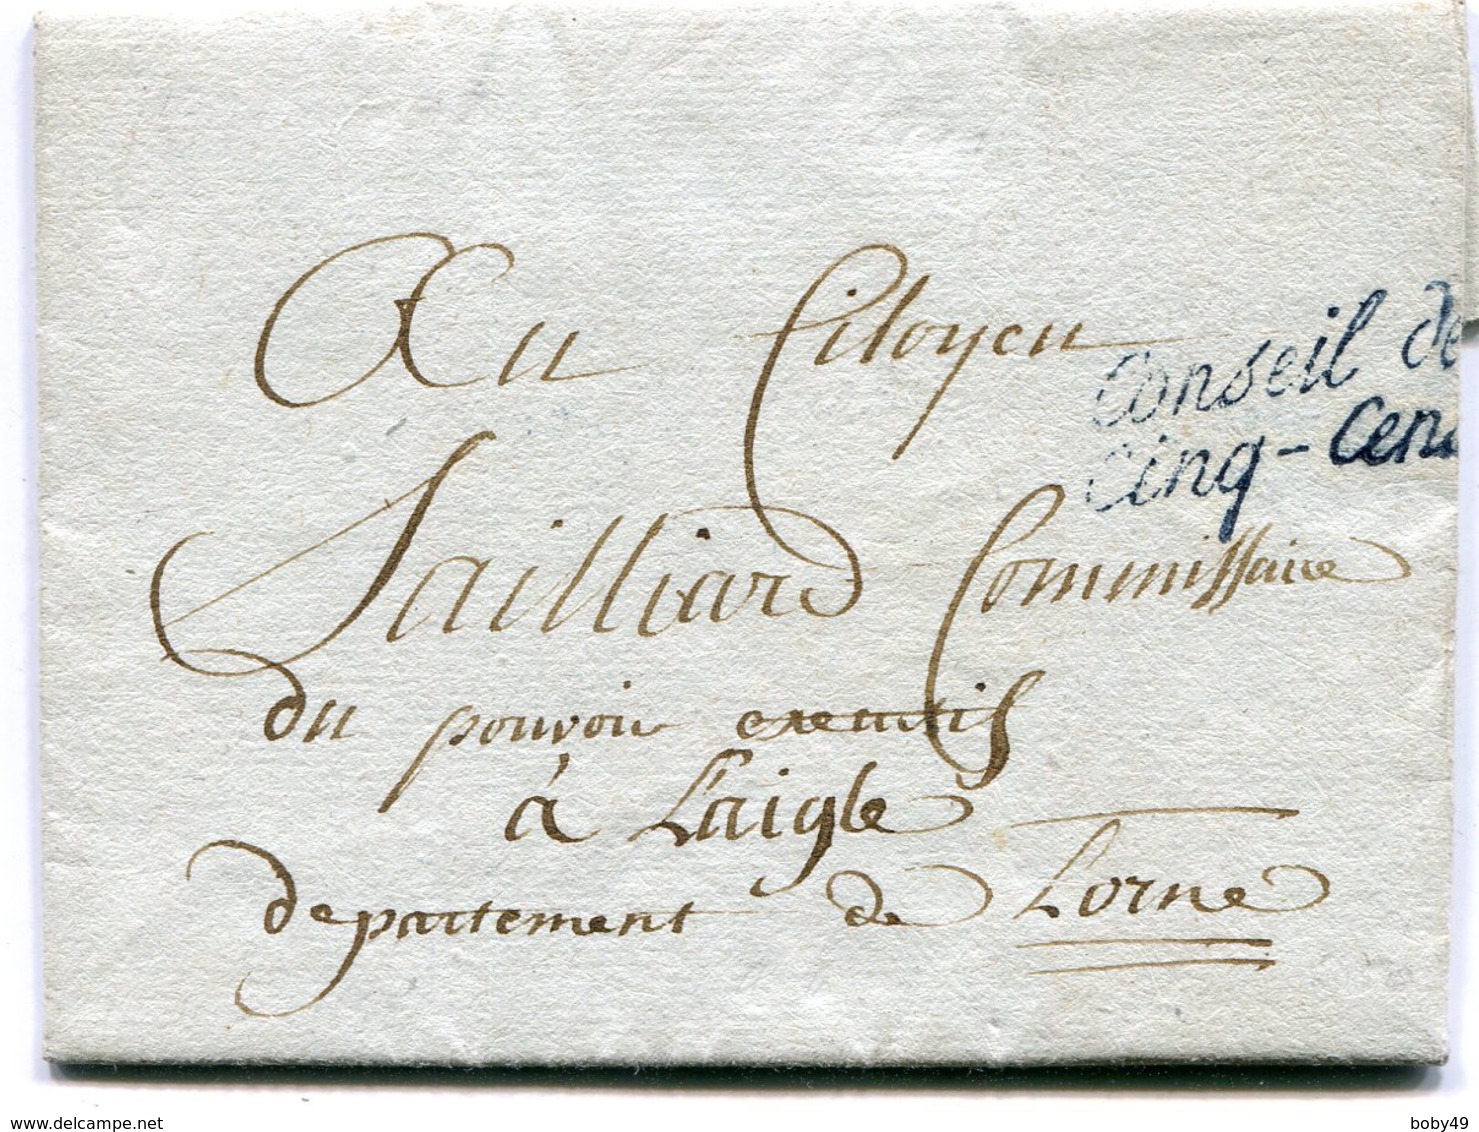 Au Citoyen
Conseil de
Cinq-Cen
Sailliard Commissaire
du pouvoir executif
à Laigle
departement de Lorne
www.delcampe.net
boby49